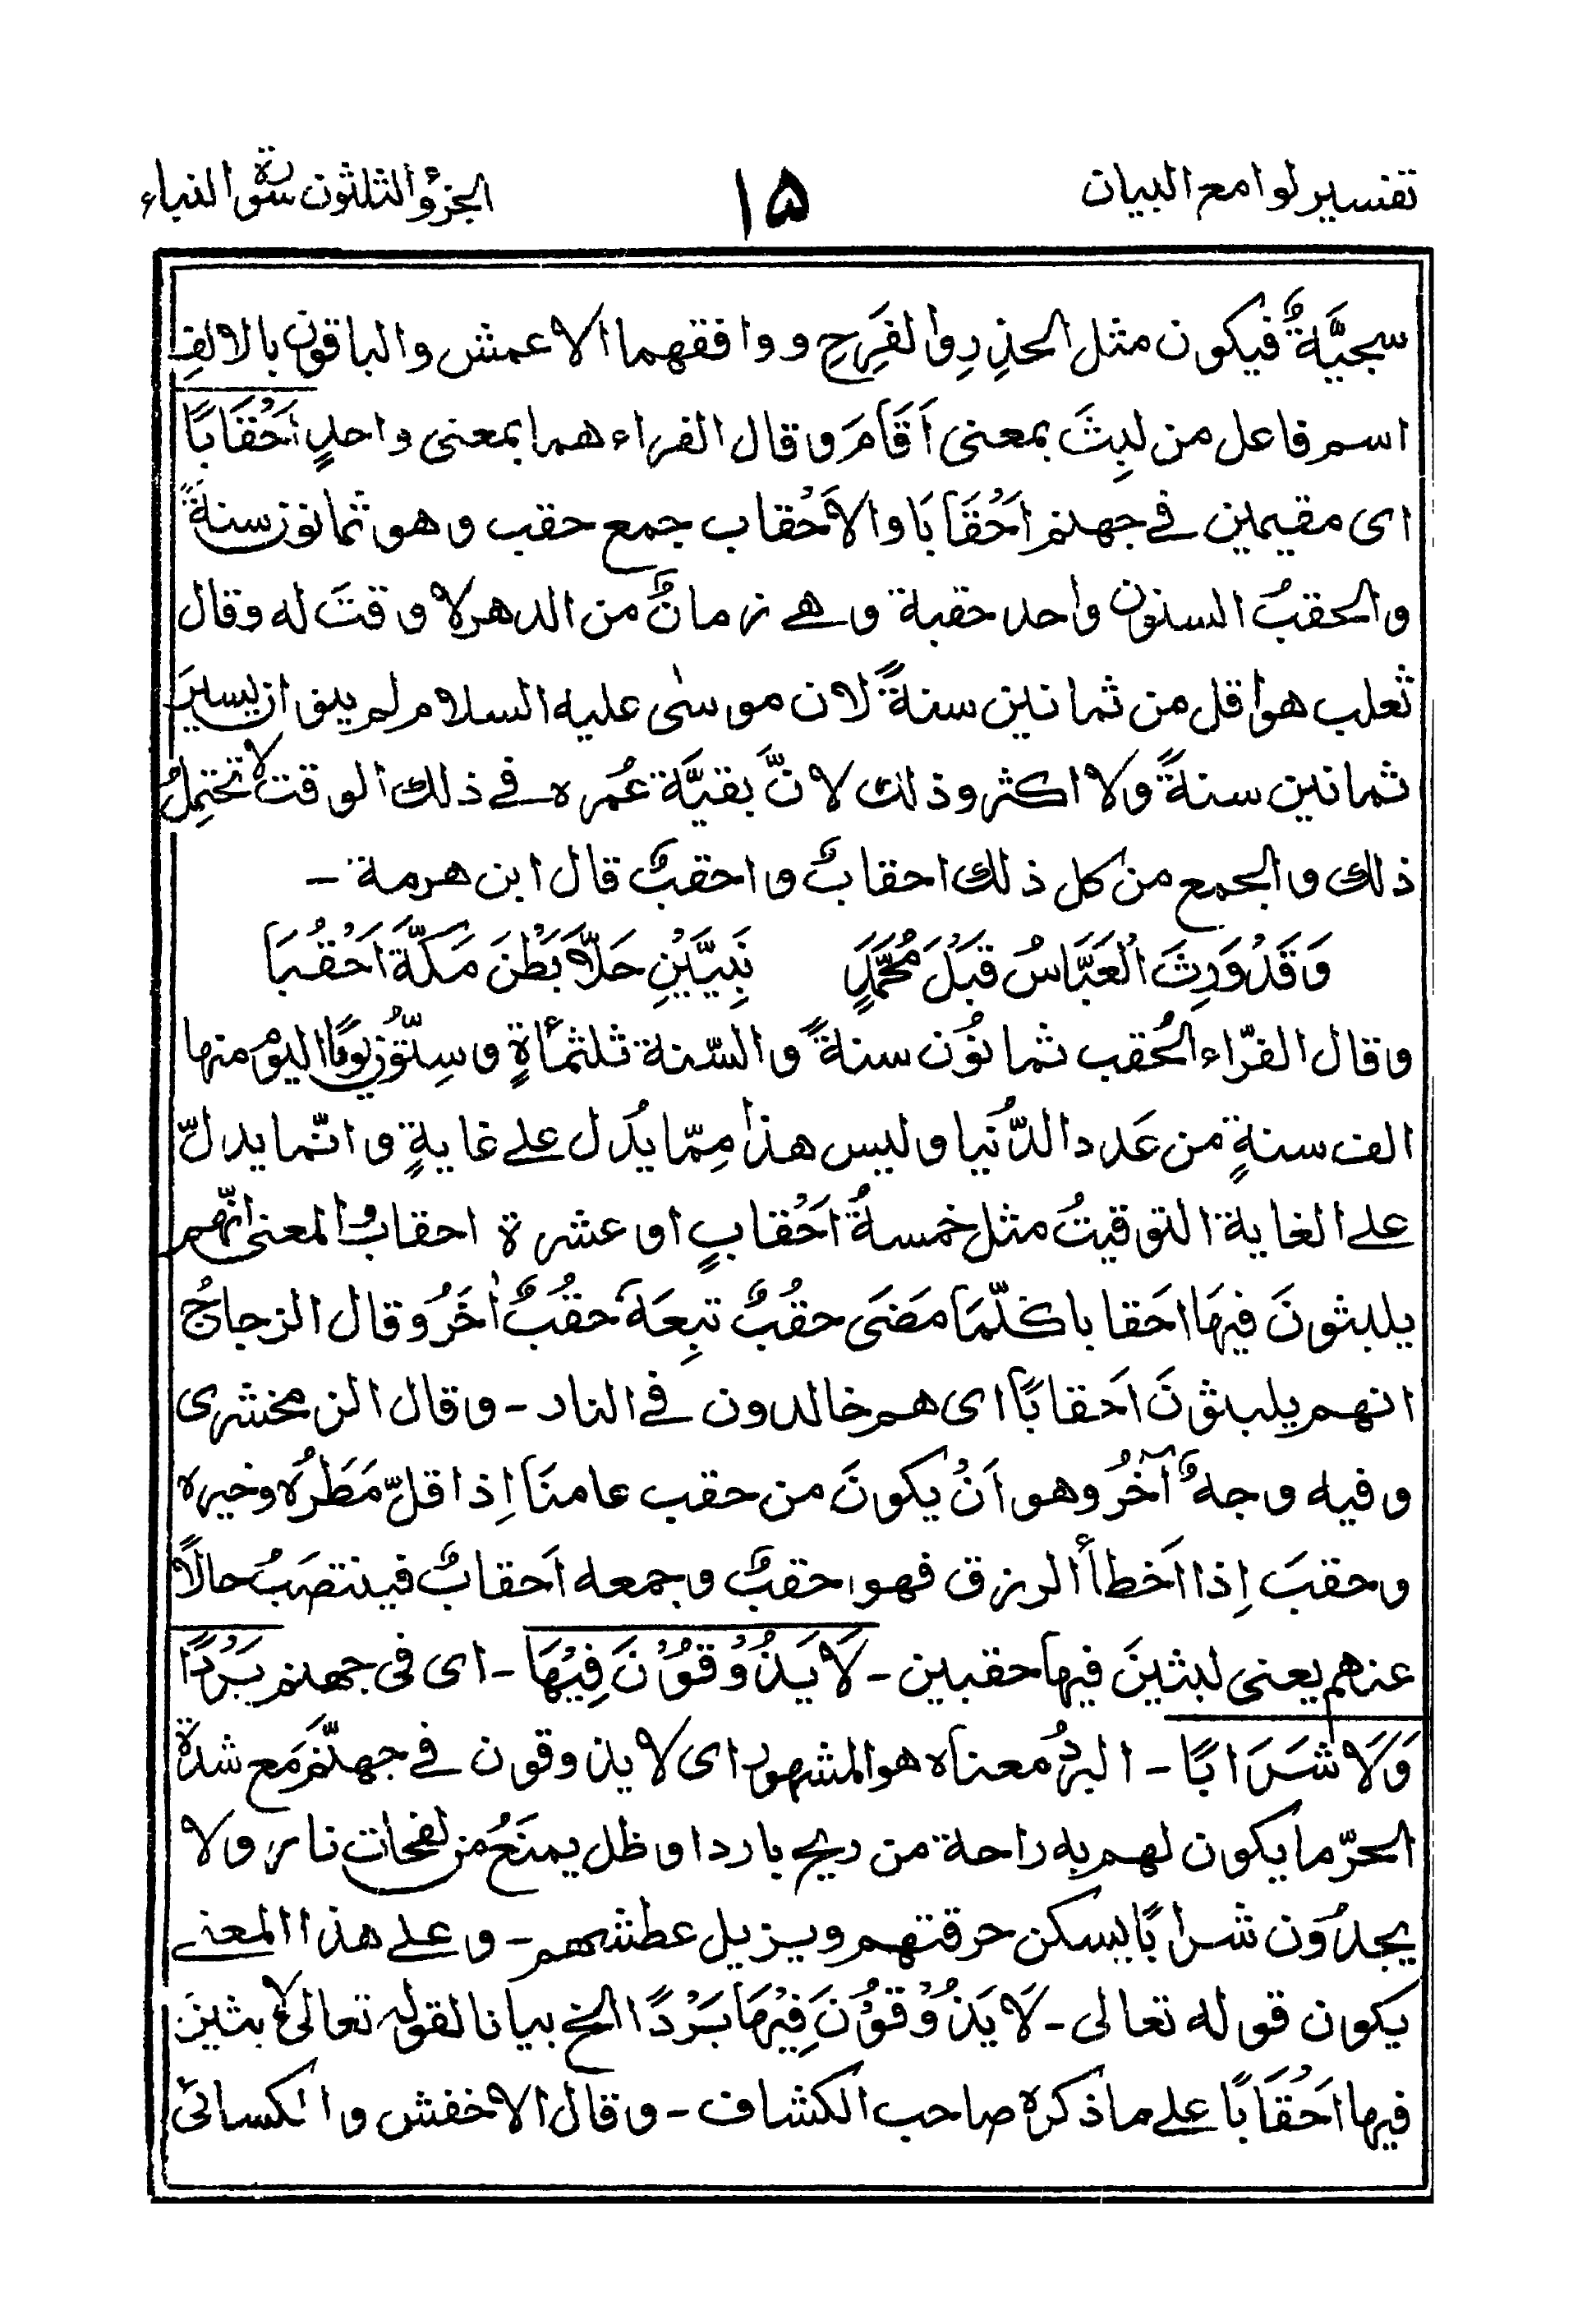 تفسير لوامع البيان ١٥ الجزؤ الثلثون سورة النباء
سجيَّةٌ فيكون مثل الحذِرِ والفَرِحِ ووافقهما الاعمش والباقون بالالفِ
اسم فاعل من لبِثَ بمعنى اَقَامَ وقال الفراء هما بمعنى واحدٍ اَحْقَابًا
اى مقيمين فى جهنم اَحْقَابَا والاَحْقاب جمع حقب وهو ثمانون سنةً
والحقبُ السنون واحد حقبة وهى زمانٌ من الدهر لا وقتَ له وقال
ثعلب هو اقل من ثمانين سنةً لان موسٰى عليه السلام لم ينو ان يسيرَ
ثمانين سنةً ولا اكثر وذلك لانَّ بقيَّة عُمره فى ذلك الوقت لا تحتمِلُ
ذلك والجمع من كل ذلك احقابٌ واحقبٌ قال ابن هرمة -
وَقَدْ وَرِثَ الْعَبَّاسُ قَبْلَ مُحَمَّدٍ نَبِيَّيْنِ حَلَّا بَطْنَ مَكَّةَ اَحْقُبَا
وقال الفرّاء الحُقب ثمانُون سنةً والسّنة ثلثمأةٍ وسِتّون يومًا اليوم منها
الف سنةٍ من عَدد الدُّنيا وليس هذا مِمّا يدُل على غايةٍ وانّما يدلّ
على الغاية التوقيتُ مثل خمسةُ اَحْقابٍ او عشرة احقابٍ والمعنى انّهم
يلبثونَ فيهَا احَقابا كلّمَا مَضَى حقُبٌ تبِعَهٗ حقُبٌ اٰخَرُ وقال الزجاجُ
انهم يلبثونَ اَحقابًا اى هم خالدون فى النار - وقال الزمخشرى
وفيه وجهٌ آخَرُ وهو اَنْ يكونَ من حقب عامنَا اِذا قلّ مَطَرُه وخيره
وحقبَ اِذا اَخطأ الرزق فهو حقبٌ وجمعه اَحقابٌ فينتصَبُ حالًا
عنهم يعنى لبثينَ فيها حقبين - لَا يَذُوْقُوْنَ فِيْهَا - اى فى جهنم بَرْدًا
وَلَا شَرَابًا - البردُ معناه هو المشهور اى لا يذوقون فى جهنّم مَع شدة
الحرّ ما يكون لهم به راحة من ريح بارد او ظل يمنَعُ من لفحات نار ولا
يجدُوَن شرابًا يسكن حرقتهم ويزيل عطشهم - وعلى هذا المعنى
يكون قوله تعالى - لَا يَذُوْقُوْنَ فِيْهَا بَرْدًا الخ بيانا لقوله تعالى لابثين
فيها اَحْقَابًا على ما ذكره صاحب الكشاف - وقال الاخفش والكسائى